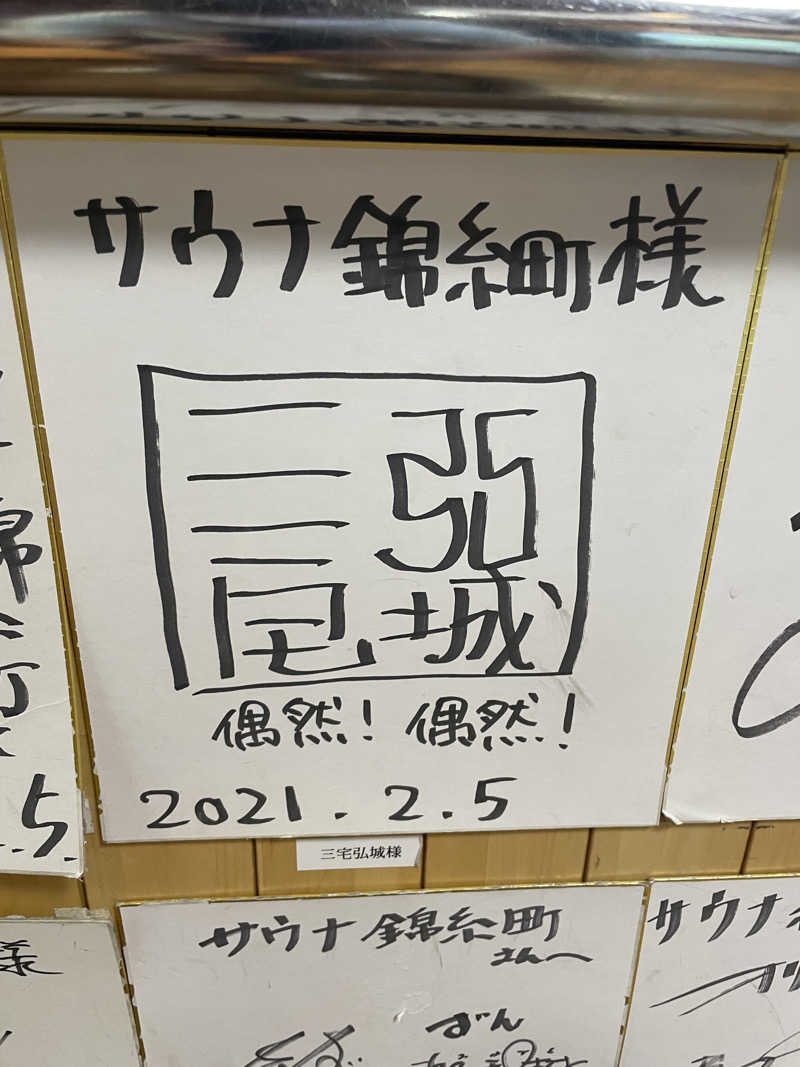 サウナ錦糸町様
三宅
弘城
偶然! 偶然!
2021.2.5
三宅弘城様
錦糸町
.5.
様
サウナ錦糸町
さんへ
ずん
サウナ